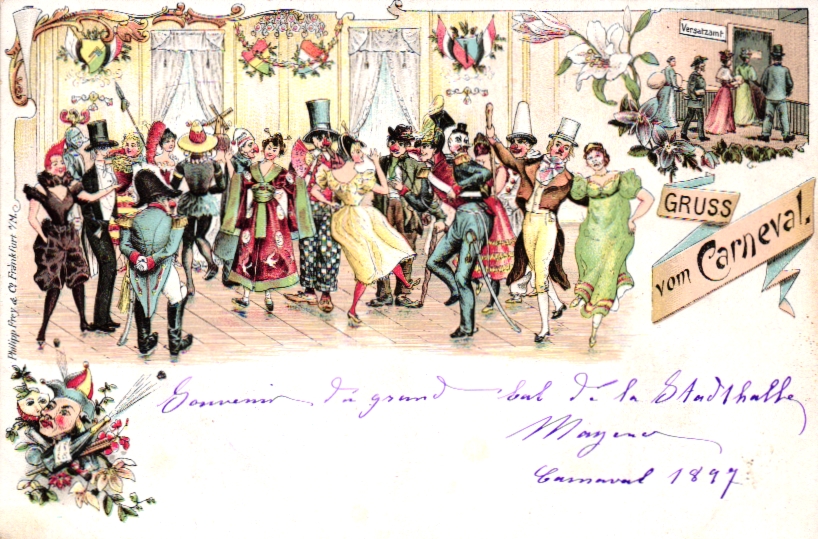 Versatzamt
GRUSS
vom Carneval.
Philipp Frey & Co Frankfurt a/M.
Souvenir du grand bal de la Stadthalle
Mayence
Carnaval 1897